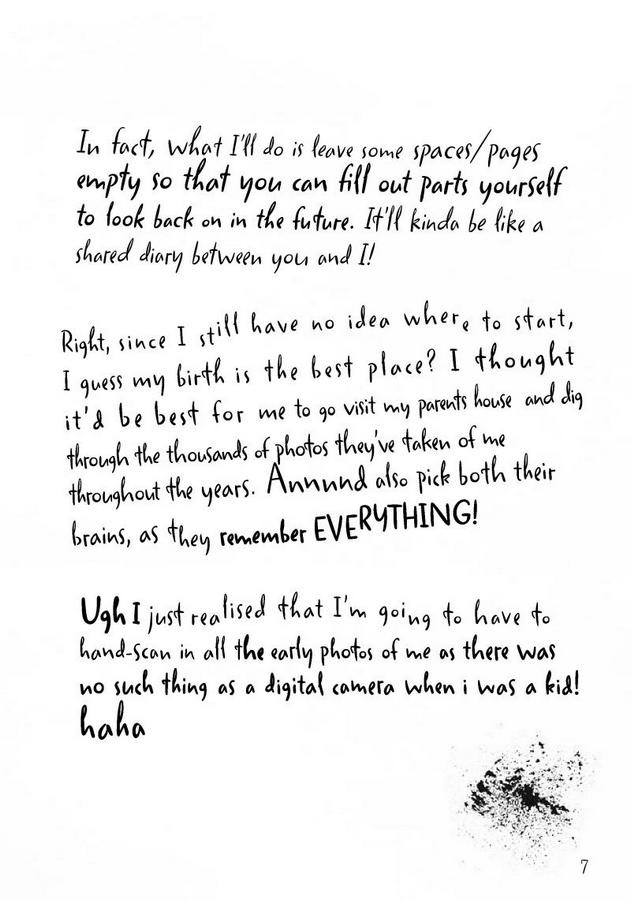 In fact, what I'll do is leave some spaces/pages
empty so that you can fill out parts yourself
to look back on in the future. It'll kinda be like a
shared diary between you and I!
Right, since I still have no idea where to start,
I guess my birth is the best place? I thought
it'd be best for me to go visit my parents house and dig
through the thousands of photos they've taken of me
throughout the years. Annnnd also pick both their
brains, as they remember EVERYTHING!
Ugh I just realised that I'm going to have to
hand-scan in all the early photos of me as there was
no such thing as a digital camera when i was a kid!
haha
7